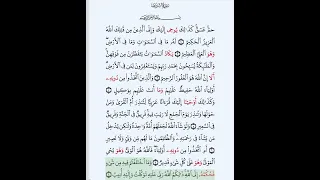 سورة الشورى
بسم الله الرحمن الرحيم
حم عسق كذلك يوحي إليك وإلى الذين من قبلك الله
العزيز الحكيم له ما في السموات وما في الأرض
وهو العلي العظيم تكاد السموات يتفطرن من فوقهن
والملئكة يسبحون بحمد ربهم ويستغفرون لمن في الأرض
ألا إن الله هو الغفور الرحيم والذين اتخذوا من دونه
أولياء الله حفيظ عليهم وما أنت عليهم بوكيل
وكذلك أوحينا إليك قرءانا عربيا لتنذر أم القرى ومن
حولها وتنذر يوم الجمع لا ريب فيه فريق في الجنة وفريق
في السعير ولو شاء الله لجعلهم أمة وحدة ولكن يدخل
من يشاء في رحمته والظلمون ما لهم من ولي ولا نصير
أم اتخذوا من دونه أولياء فالله هو الولي وهو يحي
الموتى وهو على كل شيء قدير وما اختلفتم فيه من شيء
فحكمه إلى الله ذلكم الله ربي عليه توكلت وإليه أنيب